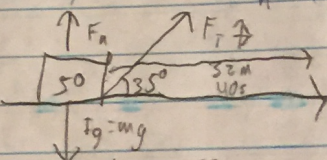 Fn
FT
50
35°
32m
40s
Fg=mg